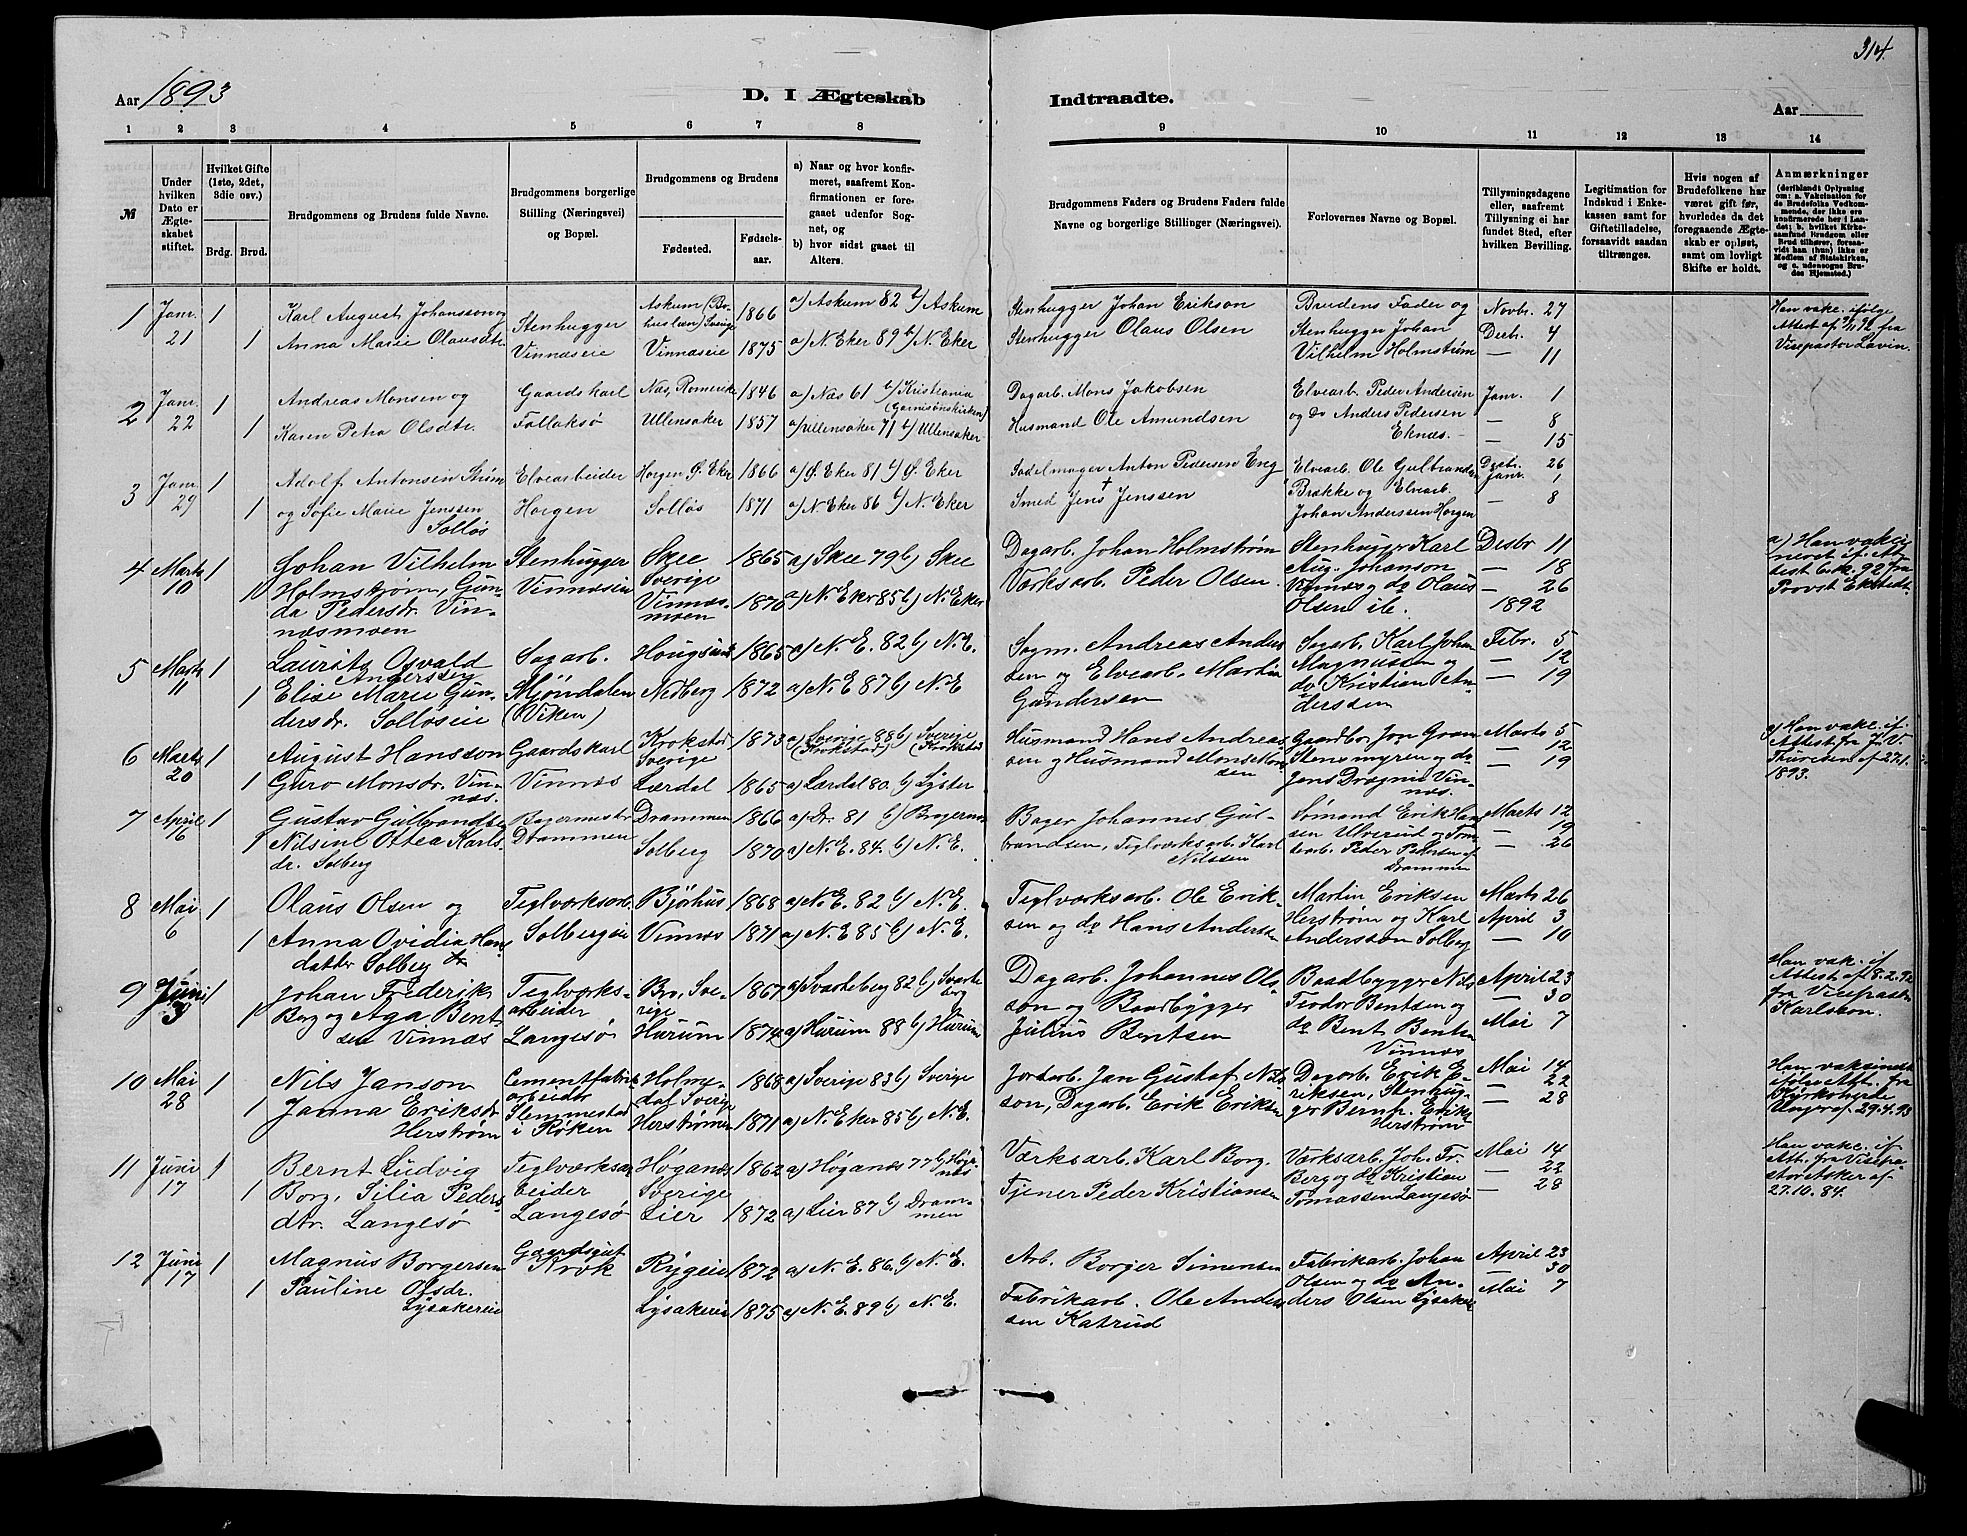 314.
Aar 1893
D. I Ægteskab
Indtraadte.
Aar
1 2 3 4 5 6 7 8 9 10 11 12 13 14
№
Under hvilken Dato er Ægteskabet stiftet.
Hvilket Gifte (1ste, 2det, 3die osv.)
Brdg. Brud.
Brudgommens og Brudens fulde Navne.
Brudgommens borgerlige Stilling (Næringsvei) og Bopæl.
Brudgommens og Brudens
Fødested.
Fødselsaar.
a) Naar og hvor konfirmeret, saafremt Konfirmationen er foregaaet udenfor Sognet, og
b) hvor sidst gaaet til Alters.
Brudgommens Faders og Brudens Faders fulde Navne og borgerlige Stillinger (Næringsvei).
Forlovernes Navne og Bopæl.
Tillysningsdagene eller, saafremt Tillysning ei har fundet Sted, efter hvilken Bevilling.
Legitimation for Indskud i Enkekassen samt for Giftetilladelse, forsaavidt saadan tiltrænges.
Hvis nogen af Brudefolkene har været gift før, hvorledes da det foregaaende Ægteskab er opløst, samt om lovligt Skifte er holdt.
Anmærkninger
(deriblandt Oplysning om a. Vaksination for de Brudefolks Vedkommende, der ikke ere konfirmerede her i Landet; b. hvilket Kirkesamfund Brudgom eller Brud tilhører, forsaavidt han (hun) ikke er Medlem af Statskirken, og c. udensogns Brudes Hjemsted.)
1 Janr. 21 1 Karl August Johansson og
1 Anna Marie Olausdtr.
Stenhugger
Vinnæseie
Askum (Bohuslæn) Sverige 1866 a) Askum 82 b) Askum
Vinnæseie 1875 a) N. Eker 89 b) N. Eker
Stenhugger Johan Erikson
Stenhugger Olaus Olsen
Brudens Fader og
Stenhugger Johan
Vilhelm Holmstrøm
Novbr. 27
Decbr. 4
— 11
Han vakc. ifølge
Attest af
Vicepastor Lavin.
2 Janr. 22 1 Andreas Monsen og
1 Karen Petra Olsdtr.
Gaardskarl
Falloksø
Næs, Romerike 1846 a) Næs 61 b) Kristiania
(Garnisonskirken)
Ullensaker 1857 a) Ullensaker 71 b) Ullensaker
Dagarb. Mons Jakobsen
Husmand Ole Amundsen
Elvearb. Peder Andersen
og do Anders Pedersen
Eknæs.
Janr. 1
— 8
— 15
3 Janr. 29 1 Adolf Antonsen Strøm
1 og Sofie Marie Jenssen
Solløs
Elvearbeider
Horgen
Horgen Ø. Eker 1866 a) Ø. Eker 81 b) Ø. Eker
Solløs 1871 a) N. Eker 86 b) N. Eker
Sadelmager Anton Pedersen Eng
Smed Jens † Jenssen
Elvearb. Ole Gulbrandsen
Brække og Elvearb.
Johan Anderssen Horgen
Decbr. 26
Janr. 1
— 8
4 Marts 10 1 Johan Vilhelm
1 Holmstrøm, Gunda Pedersdr. Vinnæsmoen
Stenhugger
Vinnæseie
Skee
Sverige 1865 a) Skee 79 b) Skee
Vinnæsmoen 1870 a) N. Eker 85 b) N. Eker
Dagarb. Johan Holmstrøm
Værksarb. Peder Olsen.
Stenhugger Karl
Aug. Johanson
Vinnæs og do Olaus
Olsen ib.
Desbr 11
— 18
— 26
1892
a) Han vakcineret if. Attest 6.2.92 fra
Provst Ekstedt.
5 Marts 11 1 Laurits Osvald
Anderssen
1 Elise Marie Gundersdr. Solløseie
Sagarb.
Mjøndalen
(Viken)
Hougsund 1865 a) N. E. 82 b) N. E.
Nedberg 1872 a) N. E 87 b) N. E
Sagm. Andreas Andersen og Elvearb. Martin
Gundersen
Sagarb. Karl Johan
Magnussen og
do Kristian Anderssen
Febr. 5
— 12
— 19
6 Marts 20 1 August Hansson
1 Guro Monsdr. Vinnæs.
Gaardskarl
Vinnæs
Krokstad
Sverige 1873 a) Sverige 88 b) Sverige
(Krokstad) (Krokstad
Lærdal 1865 a) Lærdal 80. b) Lyster
Husmand Hans Andreassen og Husmand Mons Monssen
Gaardbr. Jon Gran
Stensmyren og do
Jens Drognis Vinnæs.
Marts 5
— 12
— 19
a) Han vakc. if.
Attest fra J. V.
Thuresen af 27.1.
1893.
7 April 16 1 Gustav Gulbrandsen
1 Nilsine Ottea Karlsdr. Solberg
Bagermestr
Drammen
Drammen 1866 a) Dr. 81 b) Bragernæs
Solberg 1870 a) N. E. 84. b) N. E.
Bager Johannes Gulbrandsen, Teglværksarb. Karl
Nilssen
Sømand Erik Hansen Ulverud og Tømmerarb. Peder Pedersen af
Drammen
Marts 12
— 19
— 26
8 Mai 6 1 Olaus Olsen og
1 Anna Ovidia Hansdatter Solberg
Teglværksarb.
Solbergeie
Bjørhus 1868 a) N. E. 82 b) N. E.
Vinnæs 1871 a) N. E 85 b) N. E.
Teglværksarb. Ole Eriksen og do Hans Andersen
Martin Eriksen
Herstrøm og Karl
Andersson Solberg
Marts 26
April 3
— 10
9 Juni 3 1 Johan Frederik
1 Borg og Aga Bentsen Vinnæs
Teglværksarbeider
Langesø
Bro, Sverige 1867 a) Svarteborg 82 b) Svarteborg
Hurum 1874 a) Hurum 88 b) Hurum
Dagarb. Johannes Olsson og Baadbygger
Julius Bentsen
Baadbygger Nils
Teodor Bentsen og
do Bent Bentsen
Vinnæs
April 23
— 30
Mai 7
Han vak. if
Attest af 18.2.92
fra Vicepastor
Karlsson.
10 Mai 28 1 Nils Janson
1 Janna Eriksdr.
Herstrøm
Cementfabrikarbeider
Slemmestad
i Røken
Holmedal Sverige 1868 a) Sverige 83 b) Sverige
Herstrømen 1871 a) N. Eker 85 b) N. E.
Jordarb. Jan Gustaf Nilsson, Dagarb. Erik Eriksen
Dagarb. Erik Eriksen, Stenhugger Bernh. Eriks.
Herstrøm
Mai 14
— 22
— 28
Han vaksineret
ifølge Att. fra
Kyrkoherde
Unger af 29.4.93
11 Juni 17 1 Bernt Ludvig
1 Borg, Silia Pedersdtr. Langesø
Teglværksarbeider
Langesø
Høganæs
Sverige 1862 a) Høganæs 77 b) Høganæs
Lier 1872 a) Lier 87 b) Drammen
Værksarb. Karl Borg.
Tjener Peder Kristiansen
Værksarb. Joh. Fr.
Berg og do Kristian
Tomassen Langesø
Mai 14
— 22
— 28
Han vakc. if
Att. fra Vicepastor Stoker af
27.10.84.
12 Juni 17 1 Magnus Borgersen
1 Pauline Olsdr.
Lysakereie
Gaardsgut
Krok
Rygeie 1872 a) N. E. 86. b) N. E.
Lysakereie 1875 a) N. E. 89 b) N. E.
Arb. Borger Simensen
Fabrikarb. Ole Andersen Katrud
Fabrikarb. Johan
Olsen og do Anders Olsen Lysaker
April 23
— 30
Mai 7